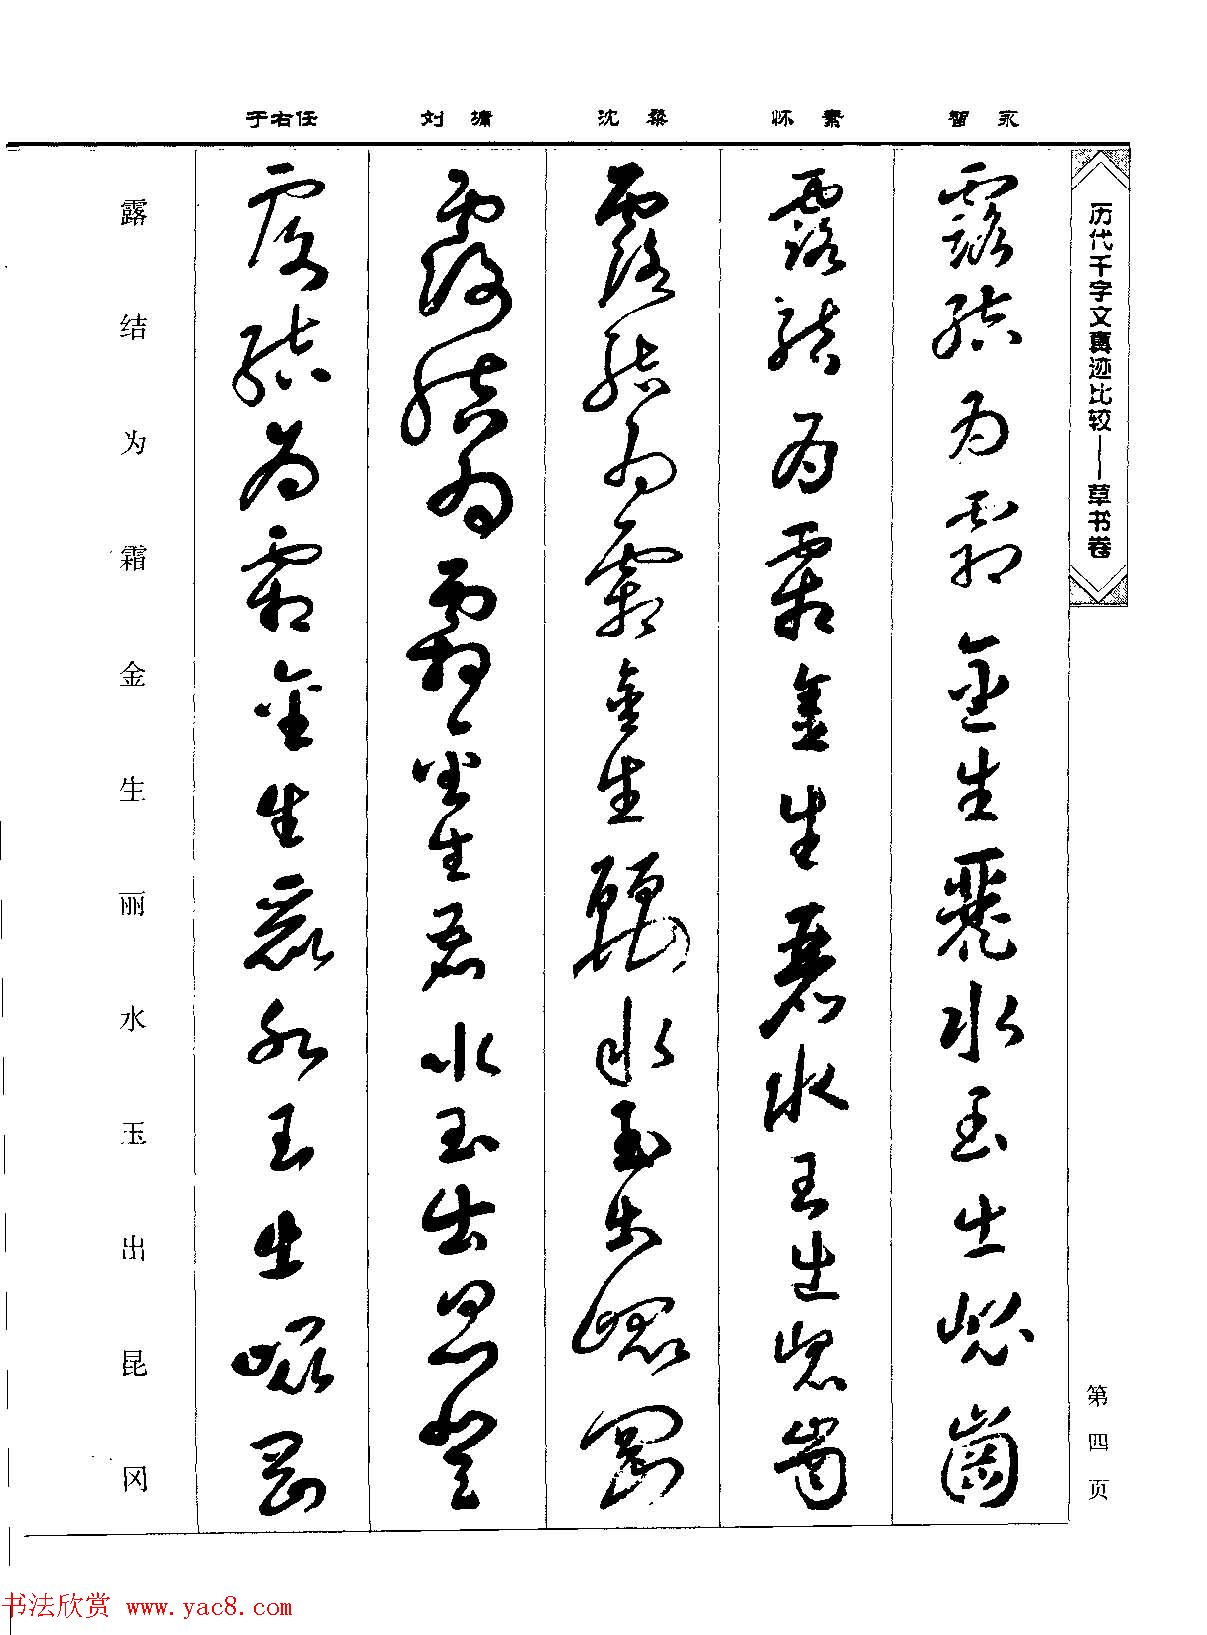 于右任 刘墉 沈粲 怀素 智永
历代千字文真迹比较——草书卷
露结为霜金生丽水玉出昆冈
露结为霜金生丽水玉出昆冈
露结为霜金生丽水玉出昆冈
露结为霜金生丽水玉出昆冈
露结为霜金生丽水玉出昆冈
露结为霜金生丽水玉出昆冈
第四页
书法欣赏 www.yac8.com